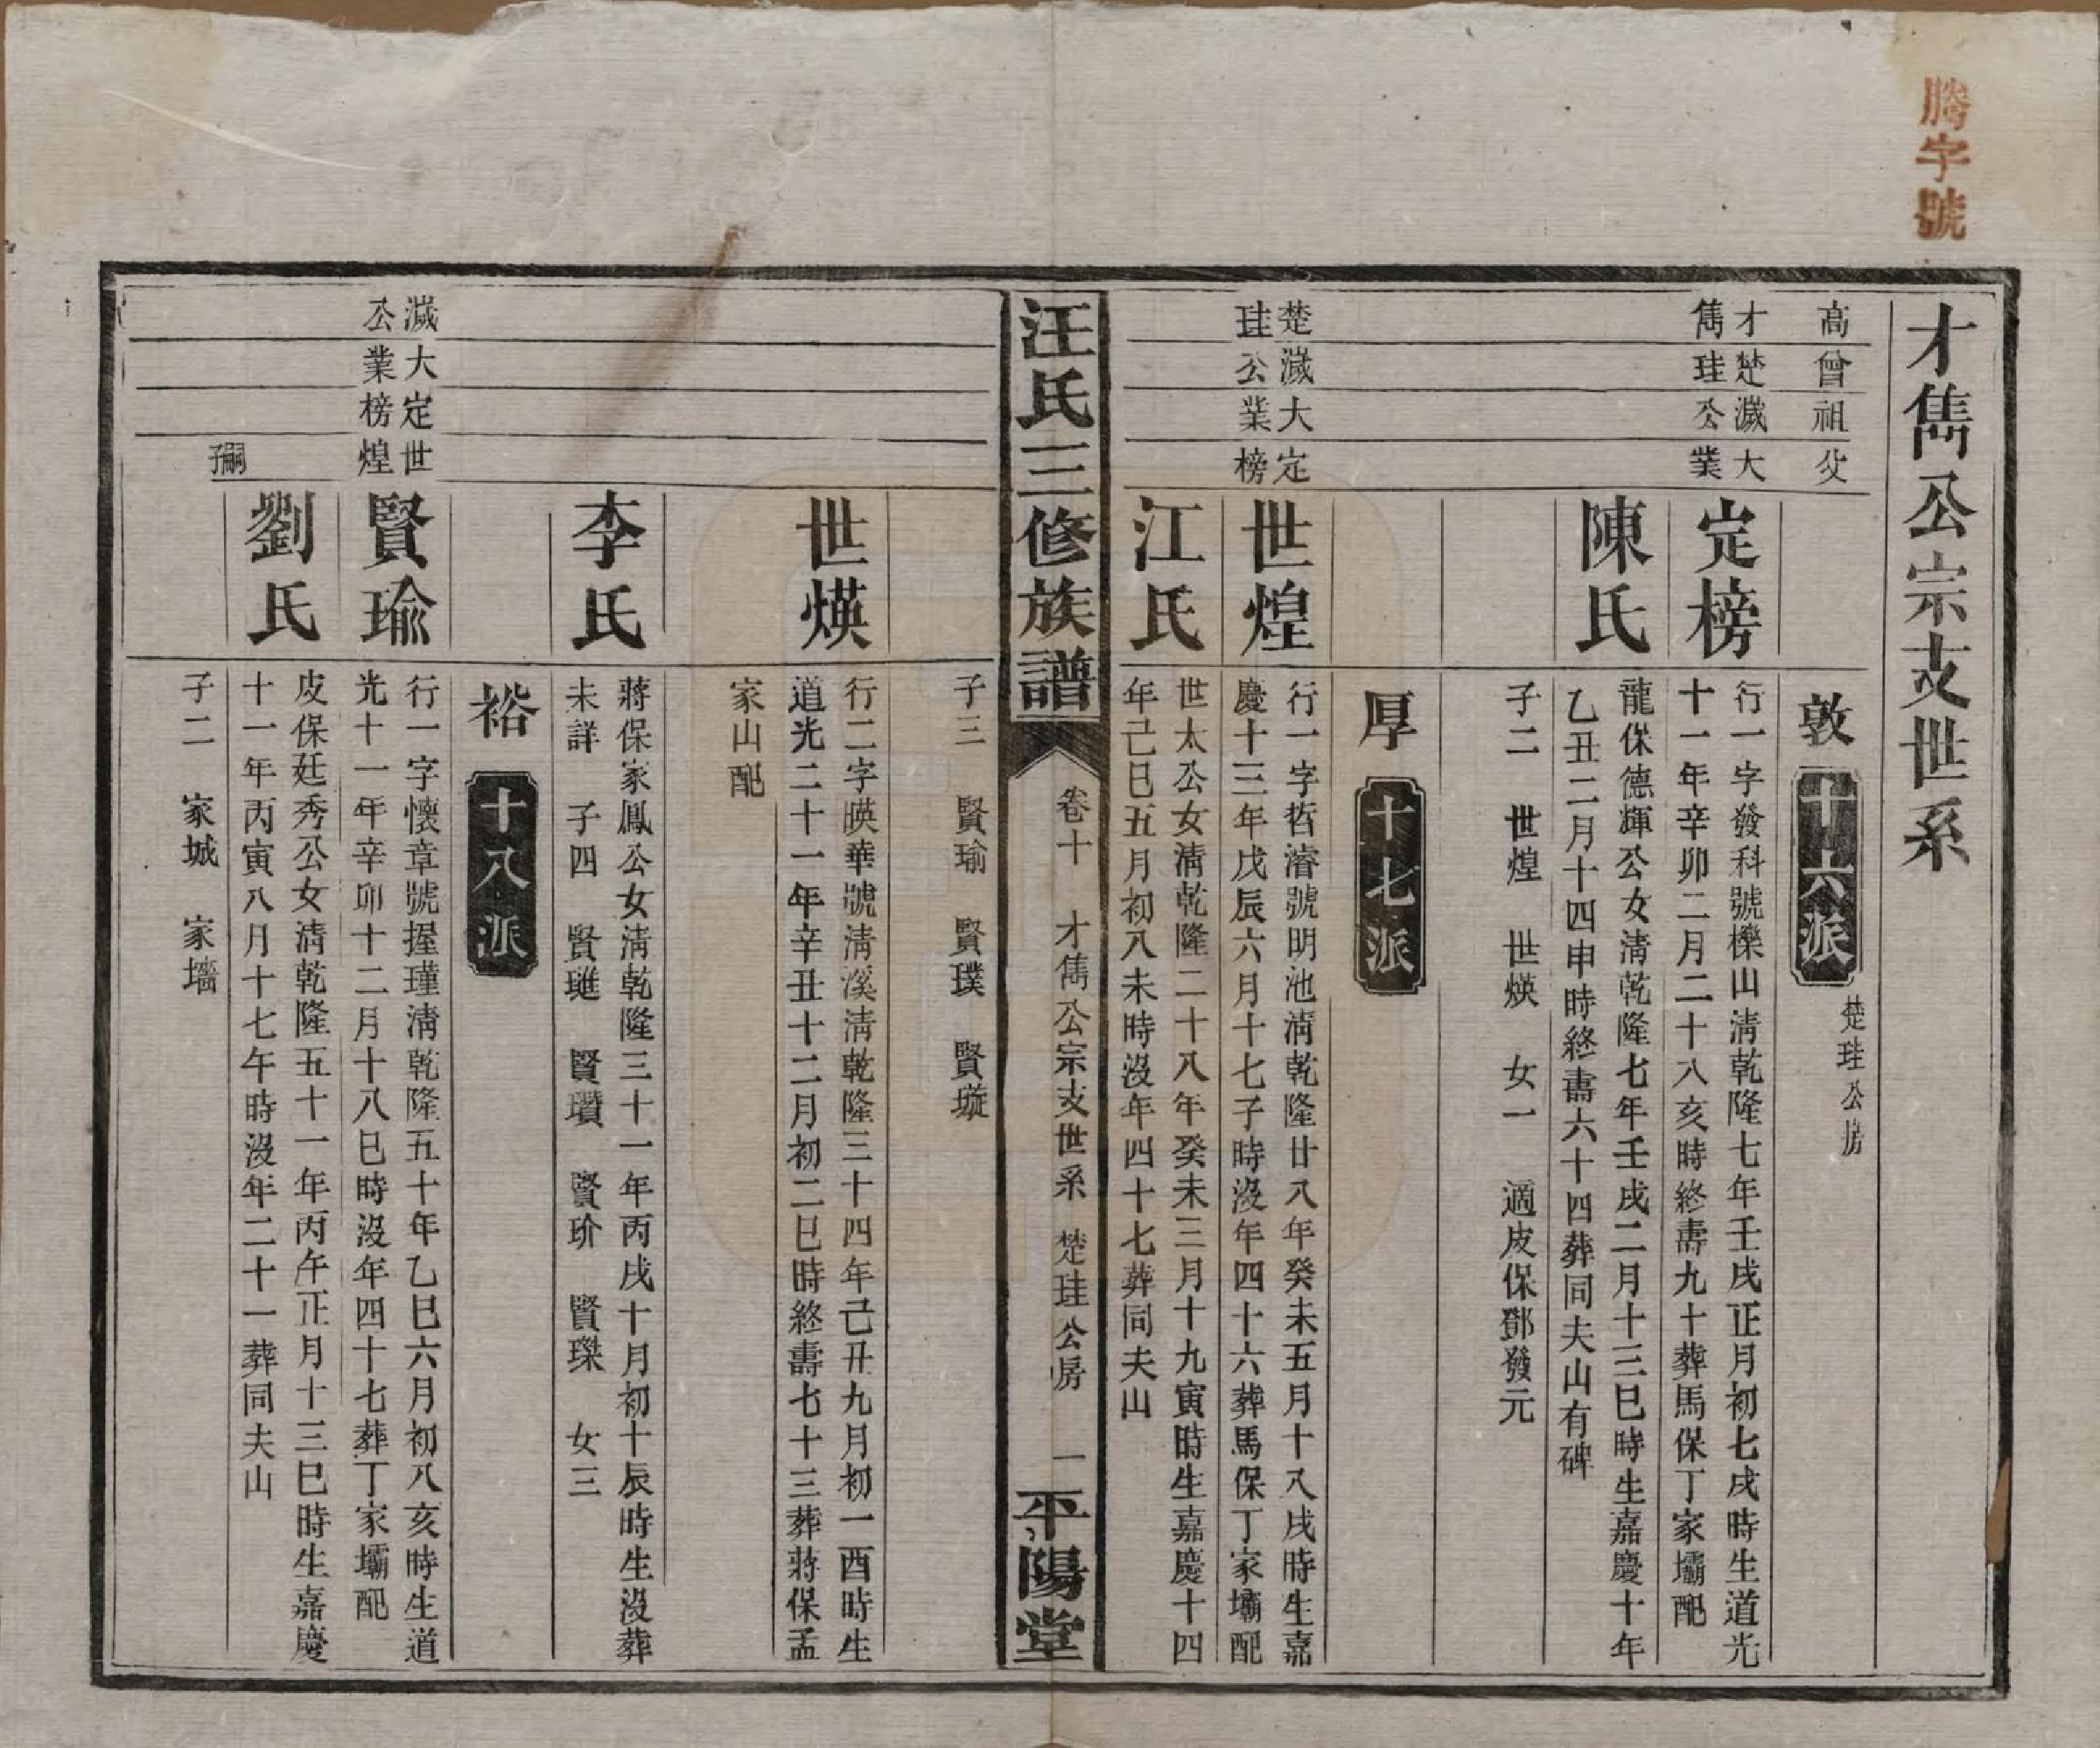 騰字號
才雋公宗支世系
高 曾 祖 父
敦 十六派 楚珪公房
才雋 楚珪 濊公 大業
定榜
行一字發科號櫟山清乾隆七年壬戌正月初七戌時生道光
十一年辛卯二月二十八亥時終壽九十葬馬保丁家壩配
陳氏
龍保德輝公女淸乾隆七年壬戌二月十三巳時生嘉慶十年
乙丑二月十四申時終壽六十四葬同夫山有碑
子二 世煌 世煐 女一 適皮保鄧發元
厚 十七派
楚珪 濊公 大業 定榜
世煌
行一字哲濬號明池淸乾隆廿八年癸未五月十八戌時生嘉
慶十三年戊辰六月十七子時沒年四十六葬馬保丁家壩配
江氏
世太公女淸乾隆二十八年癸未三月十九寅時生嘉慶十四
年己巳五月初八未時沒年四十七葬同夫山
汪氏三修族譜
卷十 才雋公宗支世系 楚珪公房 一
平陽堂
子三 賢瑜 賢璞 賢璇
世煐
行二字暎華號淸溪淸乾隆三十四年己丑九月初一酉時生
道光二十一年辛丑十二月初二巳時終壽七十三葬蔣保孟
家山配
李氏
蔣保家鳳公女淸乾隆三十一年丙戌十月初十辰時生沒葬
未詳 子四 賢璡 賢瓚 賢玠 賢琛 女三
裕 十八派
濊公 大業 定榜 世煌
賢瑜
行一字懷章號握瑾淸乾隆五十年乙巳六月初八亥時生道
光十一年辛卯十二月十八巳時沒年四十七葬丁家壩配
劉氏
皮保廷秀公女淸乾隆五十一年丙午正月十三巳時生嘉慶
十一年丙寅八月十七午時沒年二十一葬同夫山
嗣子
子二 家城 家墻